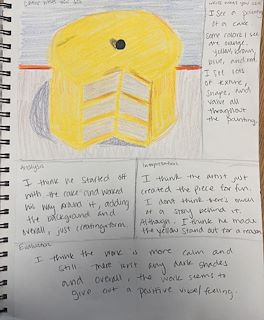 write what you see
I see a painting
of a cake
some colors I see
are orange,
yellow, brown,
blue, and red
I see lots
of texture,
shape, and
value all
throughout
the painting.
Analysis
I think he started off
with the cake and worked
his way around it, adding
the background and
overall, just creating form
Interpretation
I think the artist just
created the piece for fun.
I don't think there's much
of a story behind it,
although I think he made
the yellow stand out for a reason
Evaluation
I think the work is more calm and
still. There isn't any dark shades
and overall, the work seems to
give out a positive vibe/feeling.